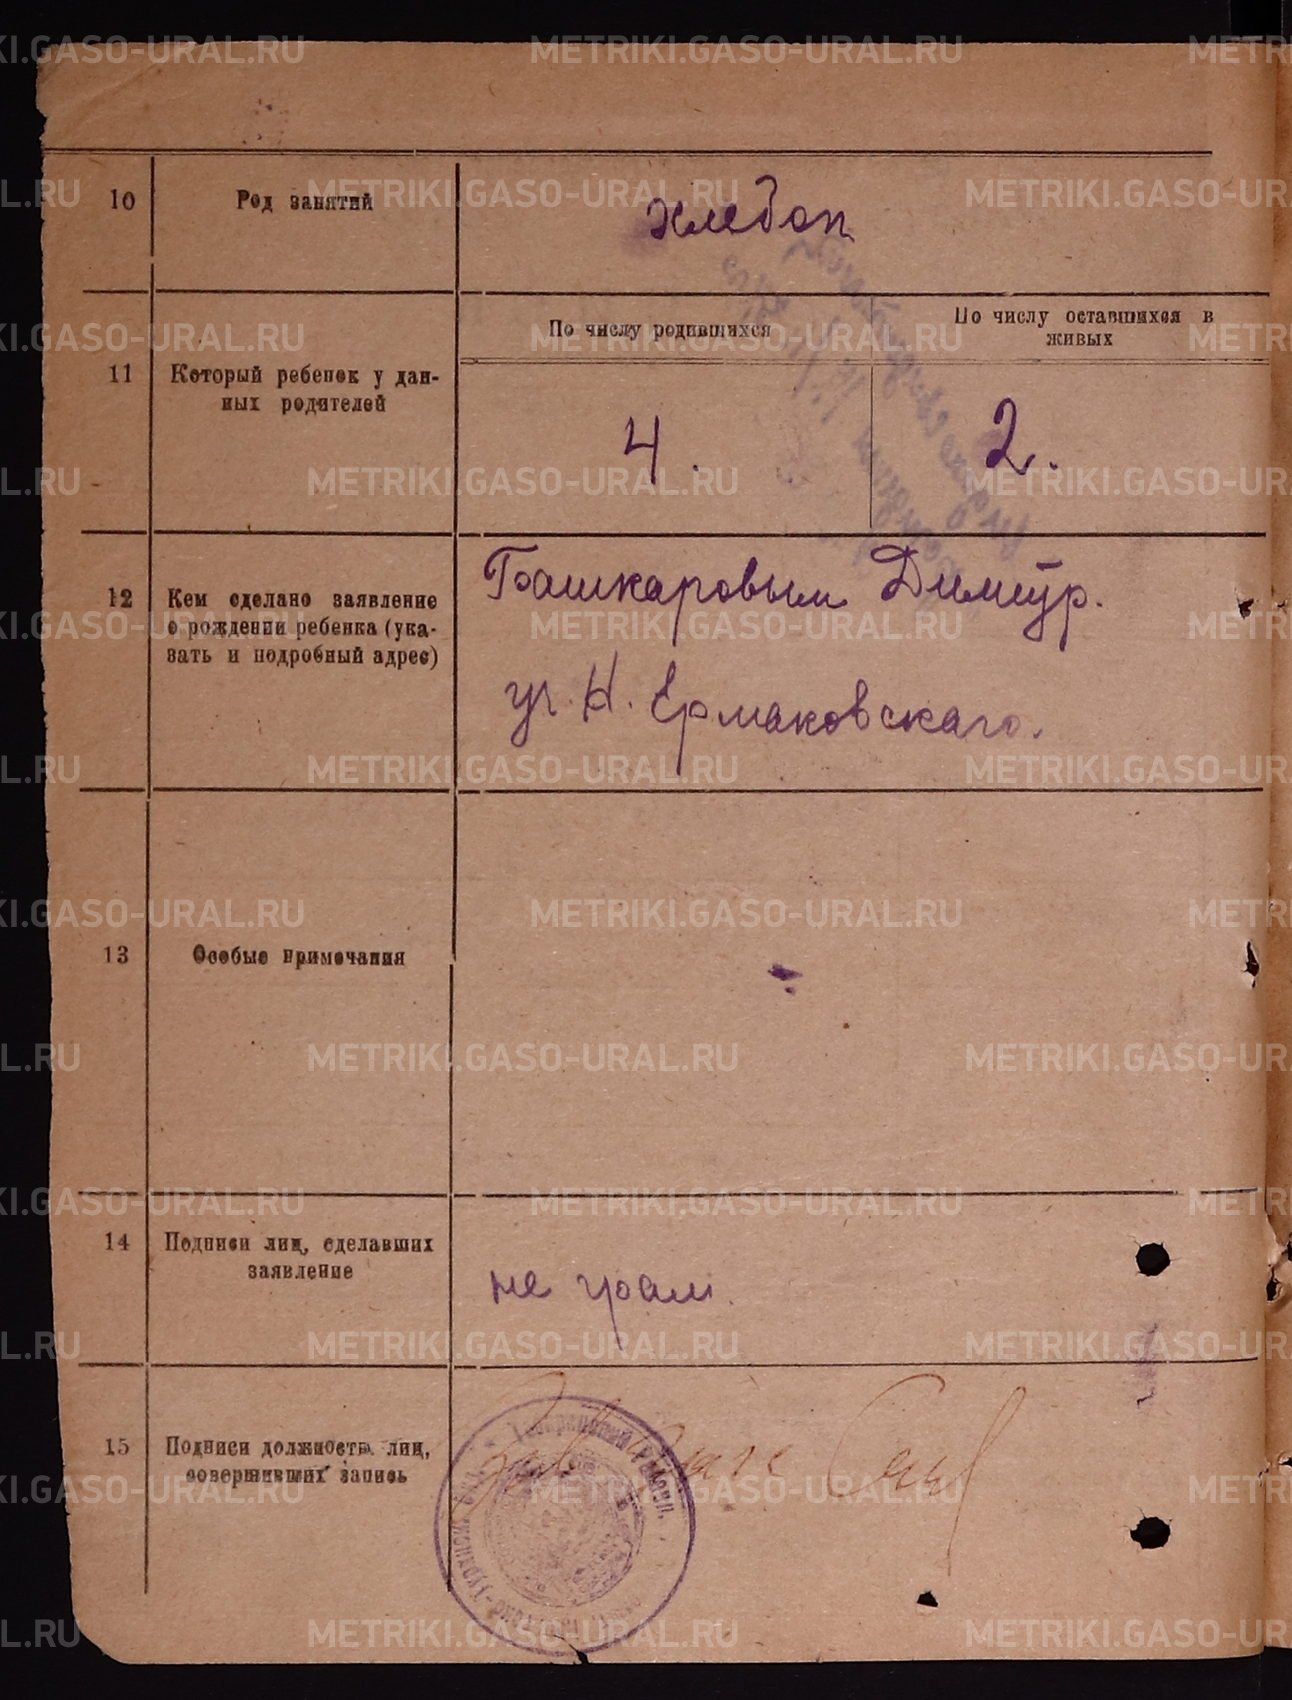 10 Род занятий хлебоп
11 Который ребенок у дан-
ных родителей
По числу родившихся
По числу оставшихся в
живых
4. 2.
12 Кем сделано заявление
о рождении ребенка (ука-
зать и подробный адрес)
Башкаровым Димитр.
уч. Н. Ермаковскаго.
13 Особые примечания
14 Подписи лиц, сделавших
заявление
не грам.
15 Подписи должность лиц,
совершивших запись
METRIKI.GASO-URAL.RU